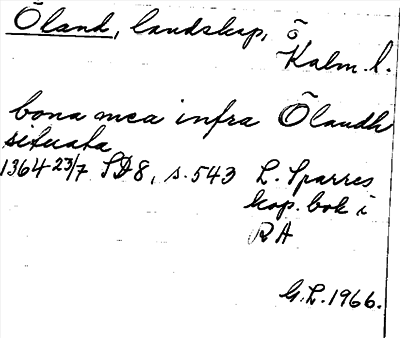 Öland, landskap, ö
Kalm. l.
bona mea infra Ölandh
situata
1364 23/7 SD 8, s. 543 L. Sparres
kop. bok i
RA
G.L. 1966.